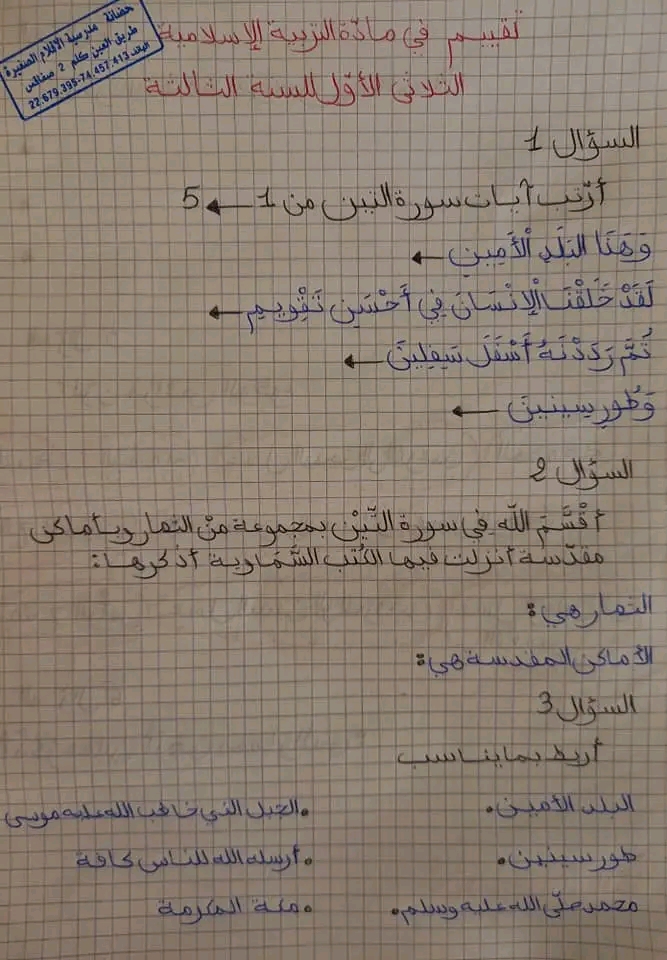 حضانة مدرسية الأقلام الصغيرة
طريق العين كلم 2 صفاقس
الهاتف 22.679.395-74.457.413
تقييم في مادّة التربية الإسلامية
الثلاثي الأوّل للسنة الثالثة
السؤال 1
أرتّب آيات سورة التين من 1 ← 5
وَهَذَا البَلَدِ الْأَمِينِ ←
لَقَدْ خَلَقْنَا الْإِنْسَانَ فِي أَحْسَنِ تَقْوِيمٍ ←
ثُمَّ رَدَدْنَهُ أَسْفَلَ سَفِلِينَ ←
وَطُورِ سِينِينَ ←
السؤال 2
أقْسَمَ اللّه فِي سورة التّين بمجموعة منْ الثمار وبأماكن
مقدّسة أنزلت فيها الكُتب السَّمَاوية أذكرها:
الثمار هي:
الأماكن المقدسة هي:
السؤال 3
أربط بما يناسب
البلد الأمين. .الجبل الذي خاطب الله عليه موسى
طور سينين. .أرسله الله للناس كافة
محمد صلّى الله عليه وسلم. .مكة المكرمة